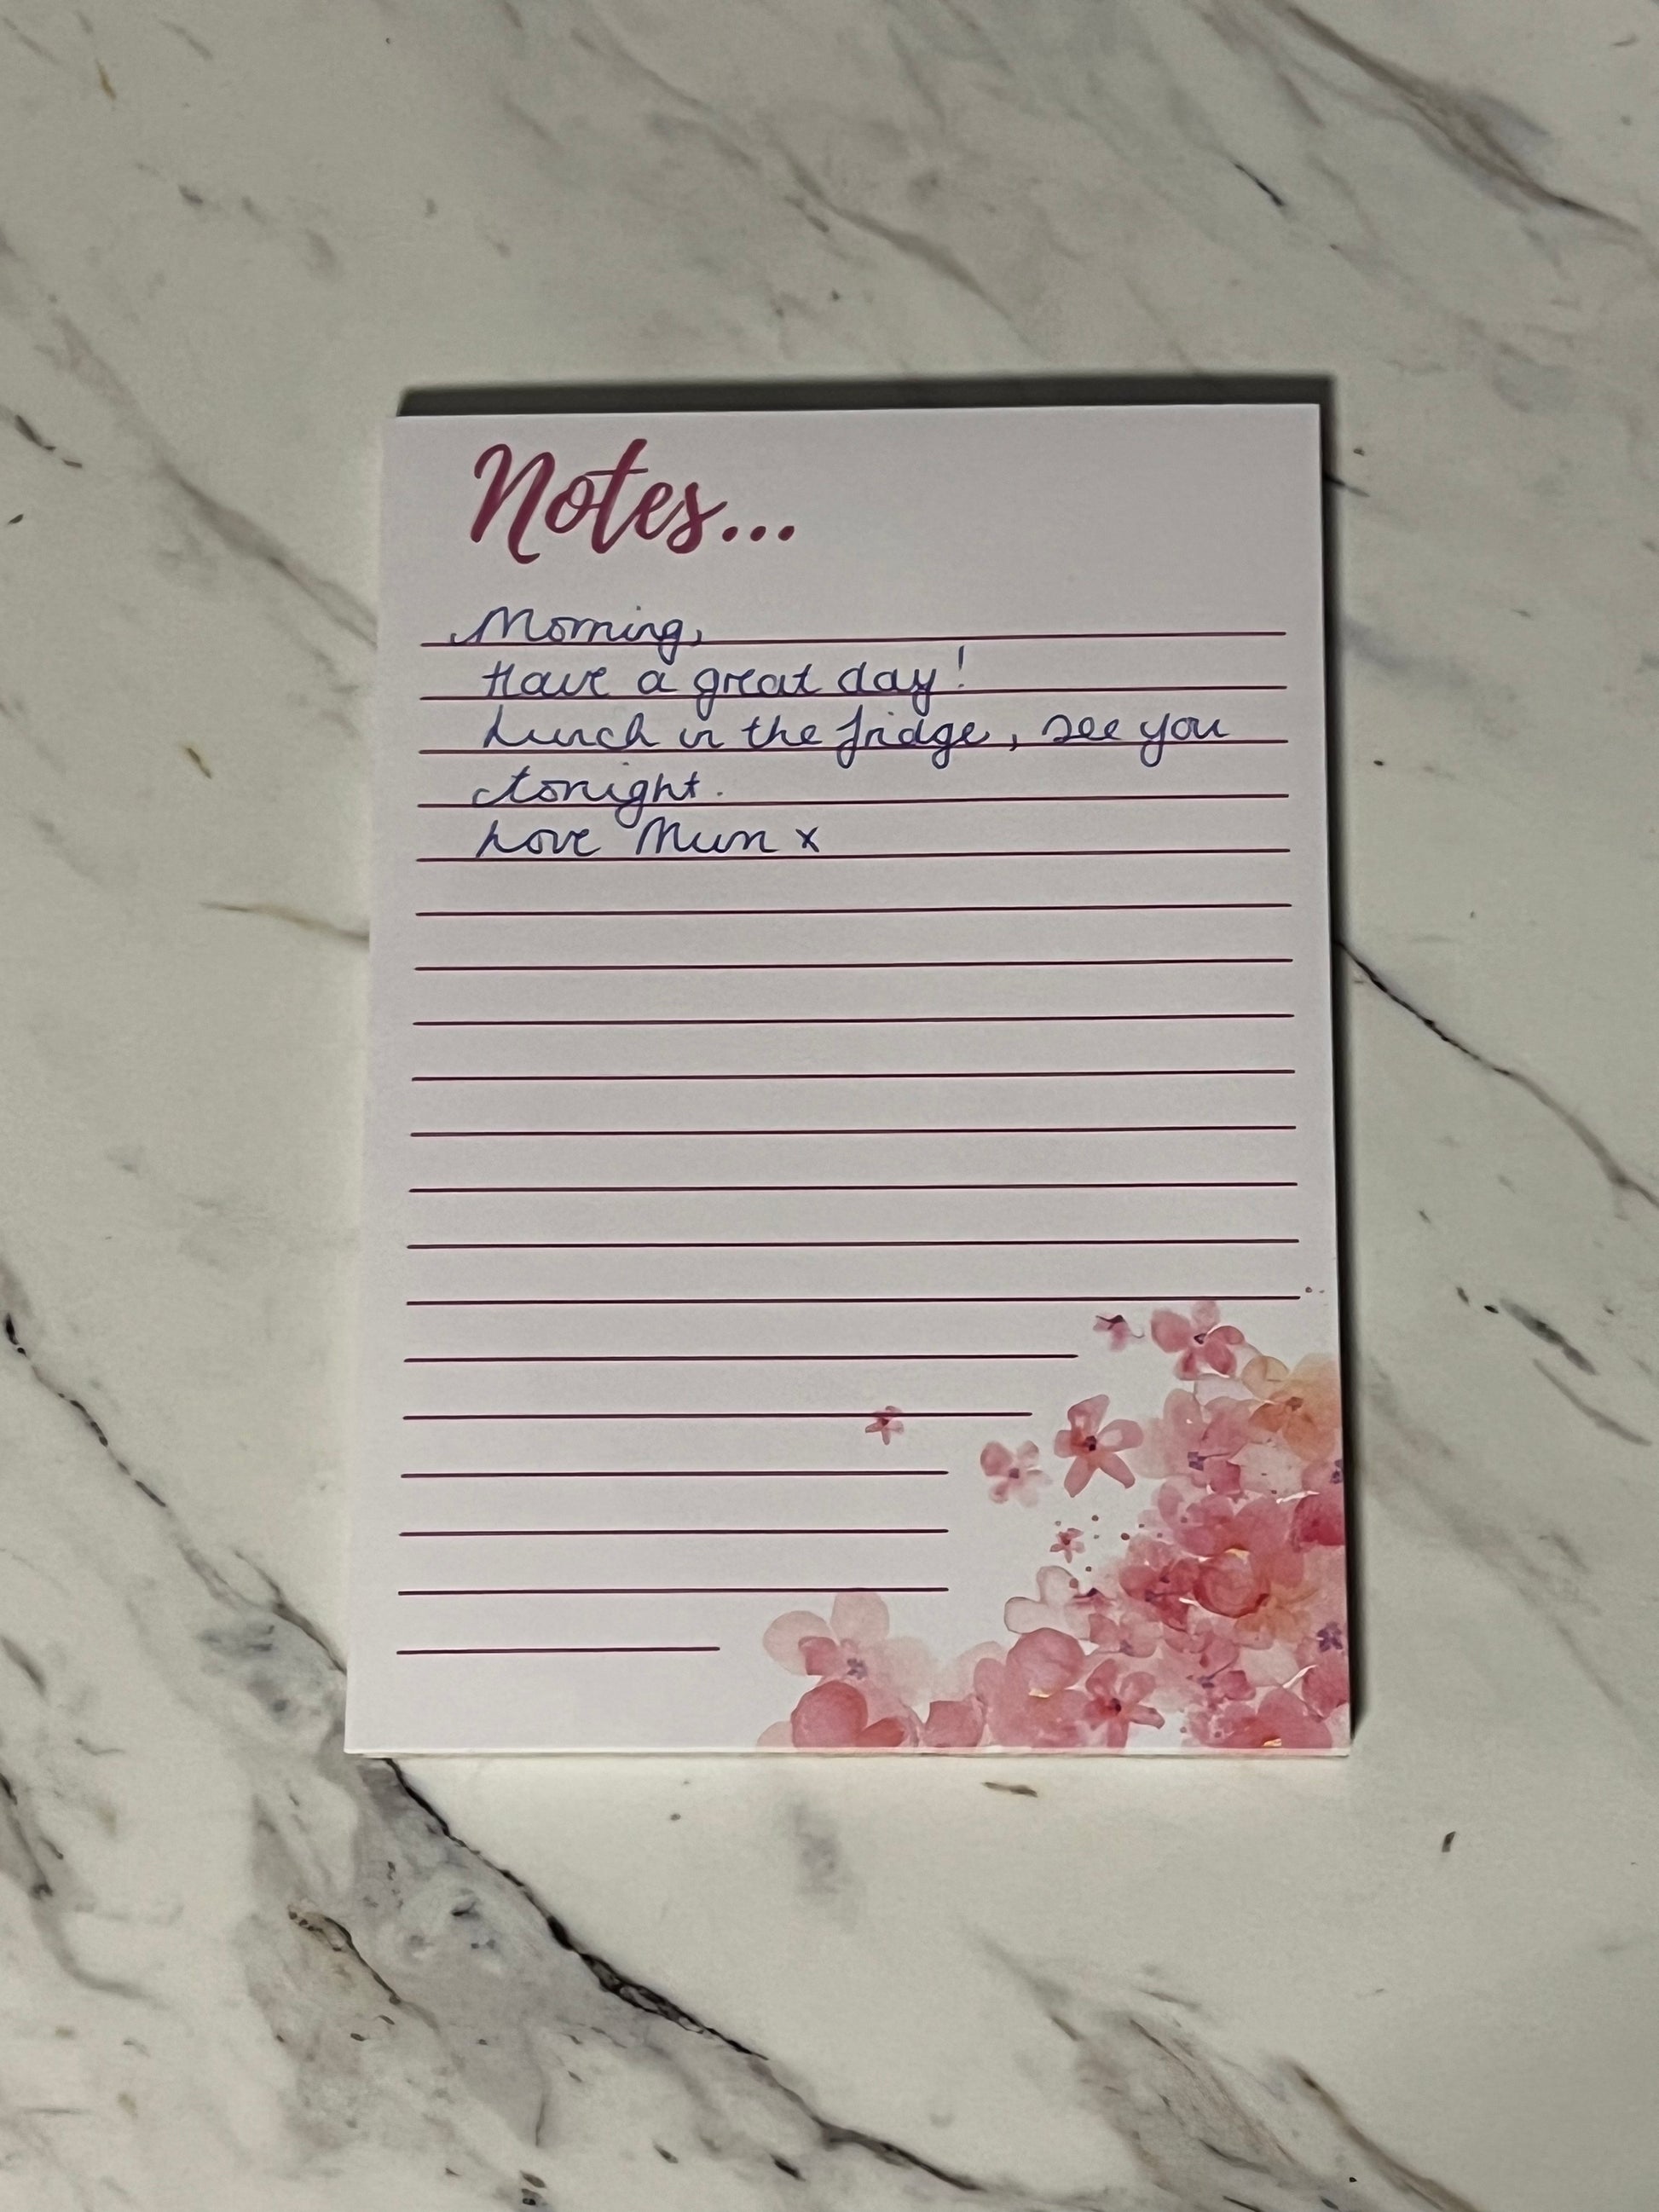 Notes...
Morning,
Have a great day!
Lunch in the fridge, see you
tonight.
Love Mum x